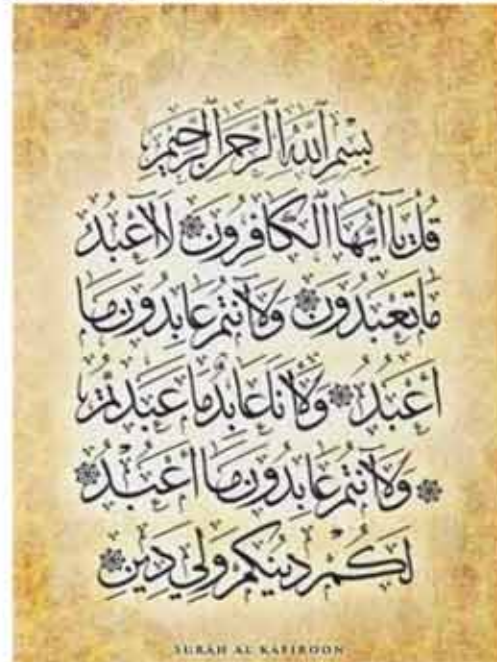 بِسْمِ اللَّهِ الرَّحْمَنِ الرَّحِيمِ
قُلْ يَا أَيُّهَا الْكَافِرُونَ ۞ لَا أَعْبُدُ
مَا تَعْبُدُونَ ۞ وَلَا أَنْتُمْ عَابِدُونَ مَا
أَعْبُدُ ۞ وَلَا أَنَا عَابِدٌ مَا عَبَدْتُمْ
۞ وَلَا أَنْتُمْ عَابِدُونَ مَا أَعْبُدُ ۞
لَكُمْ دِينُكُمْ وَلِيَ دِينِ ۞
SURAH AL KAFIROON